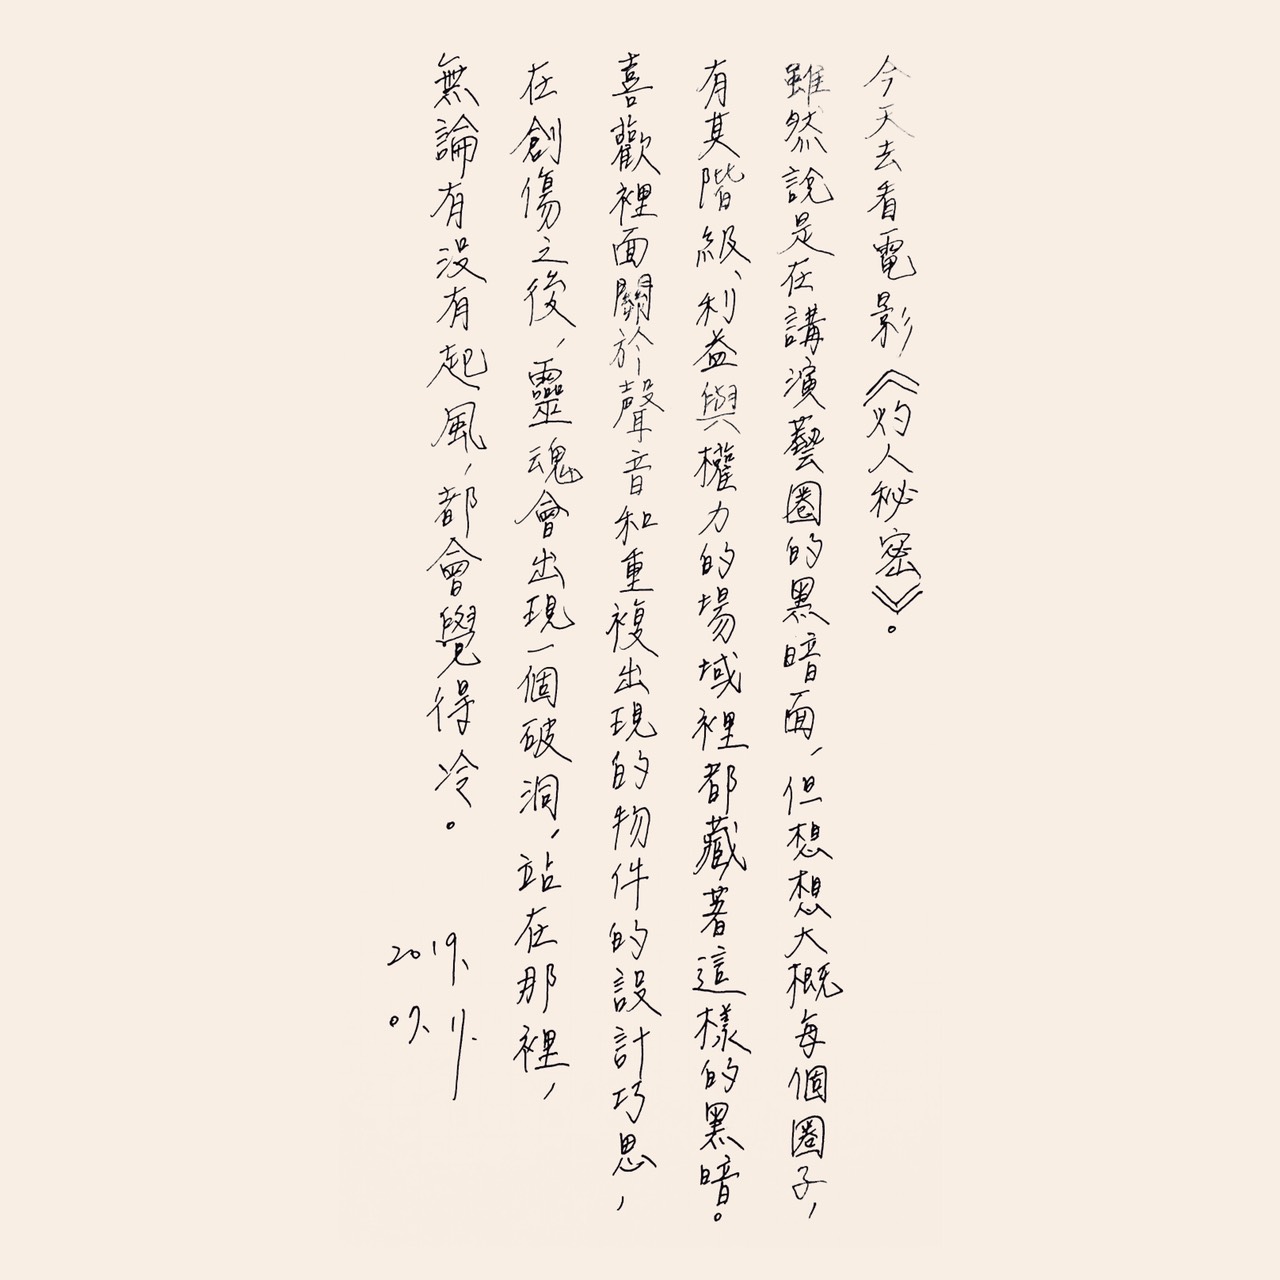 今天去看電影《灼人秘密》。
雖然說是在講演藝圈的黑暗面，但想想大概每個圈子，
有其階級、利益與權力的場域裡都藏著這樣的黑暗。
喜歡裡面關於聲音和重複出現的物件的設計巧思，
在創傷之後，靈魂會出現一個破洞，站在那裡，
無論有沒有起風，都會覺得冷。
2019.
07. 11.